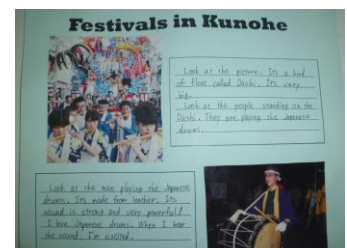 Festivals in Kunohe
Look at the picture. Its a kind
of float called Dashi. Its very
big.
Look at the people standing on the
Dashi. They are playing the Japanese
drums.
Look at the man playing the Japanese
drums. Its made from leather. Its
sound is strong and very powerful!
I love Japanese drums. When I hear
the sound, I'm excited.